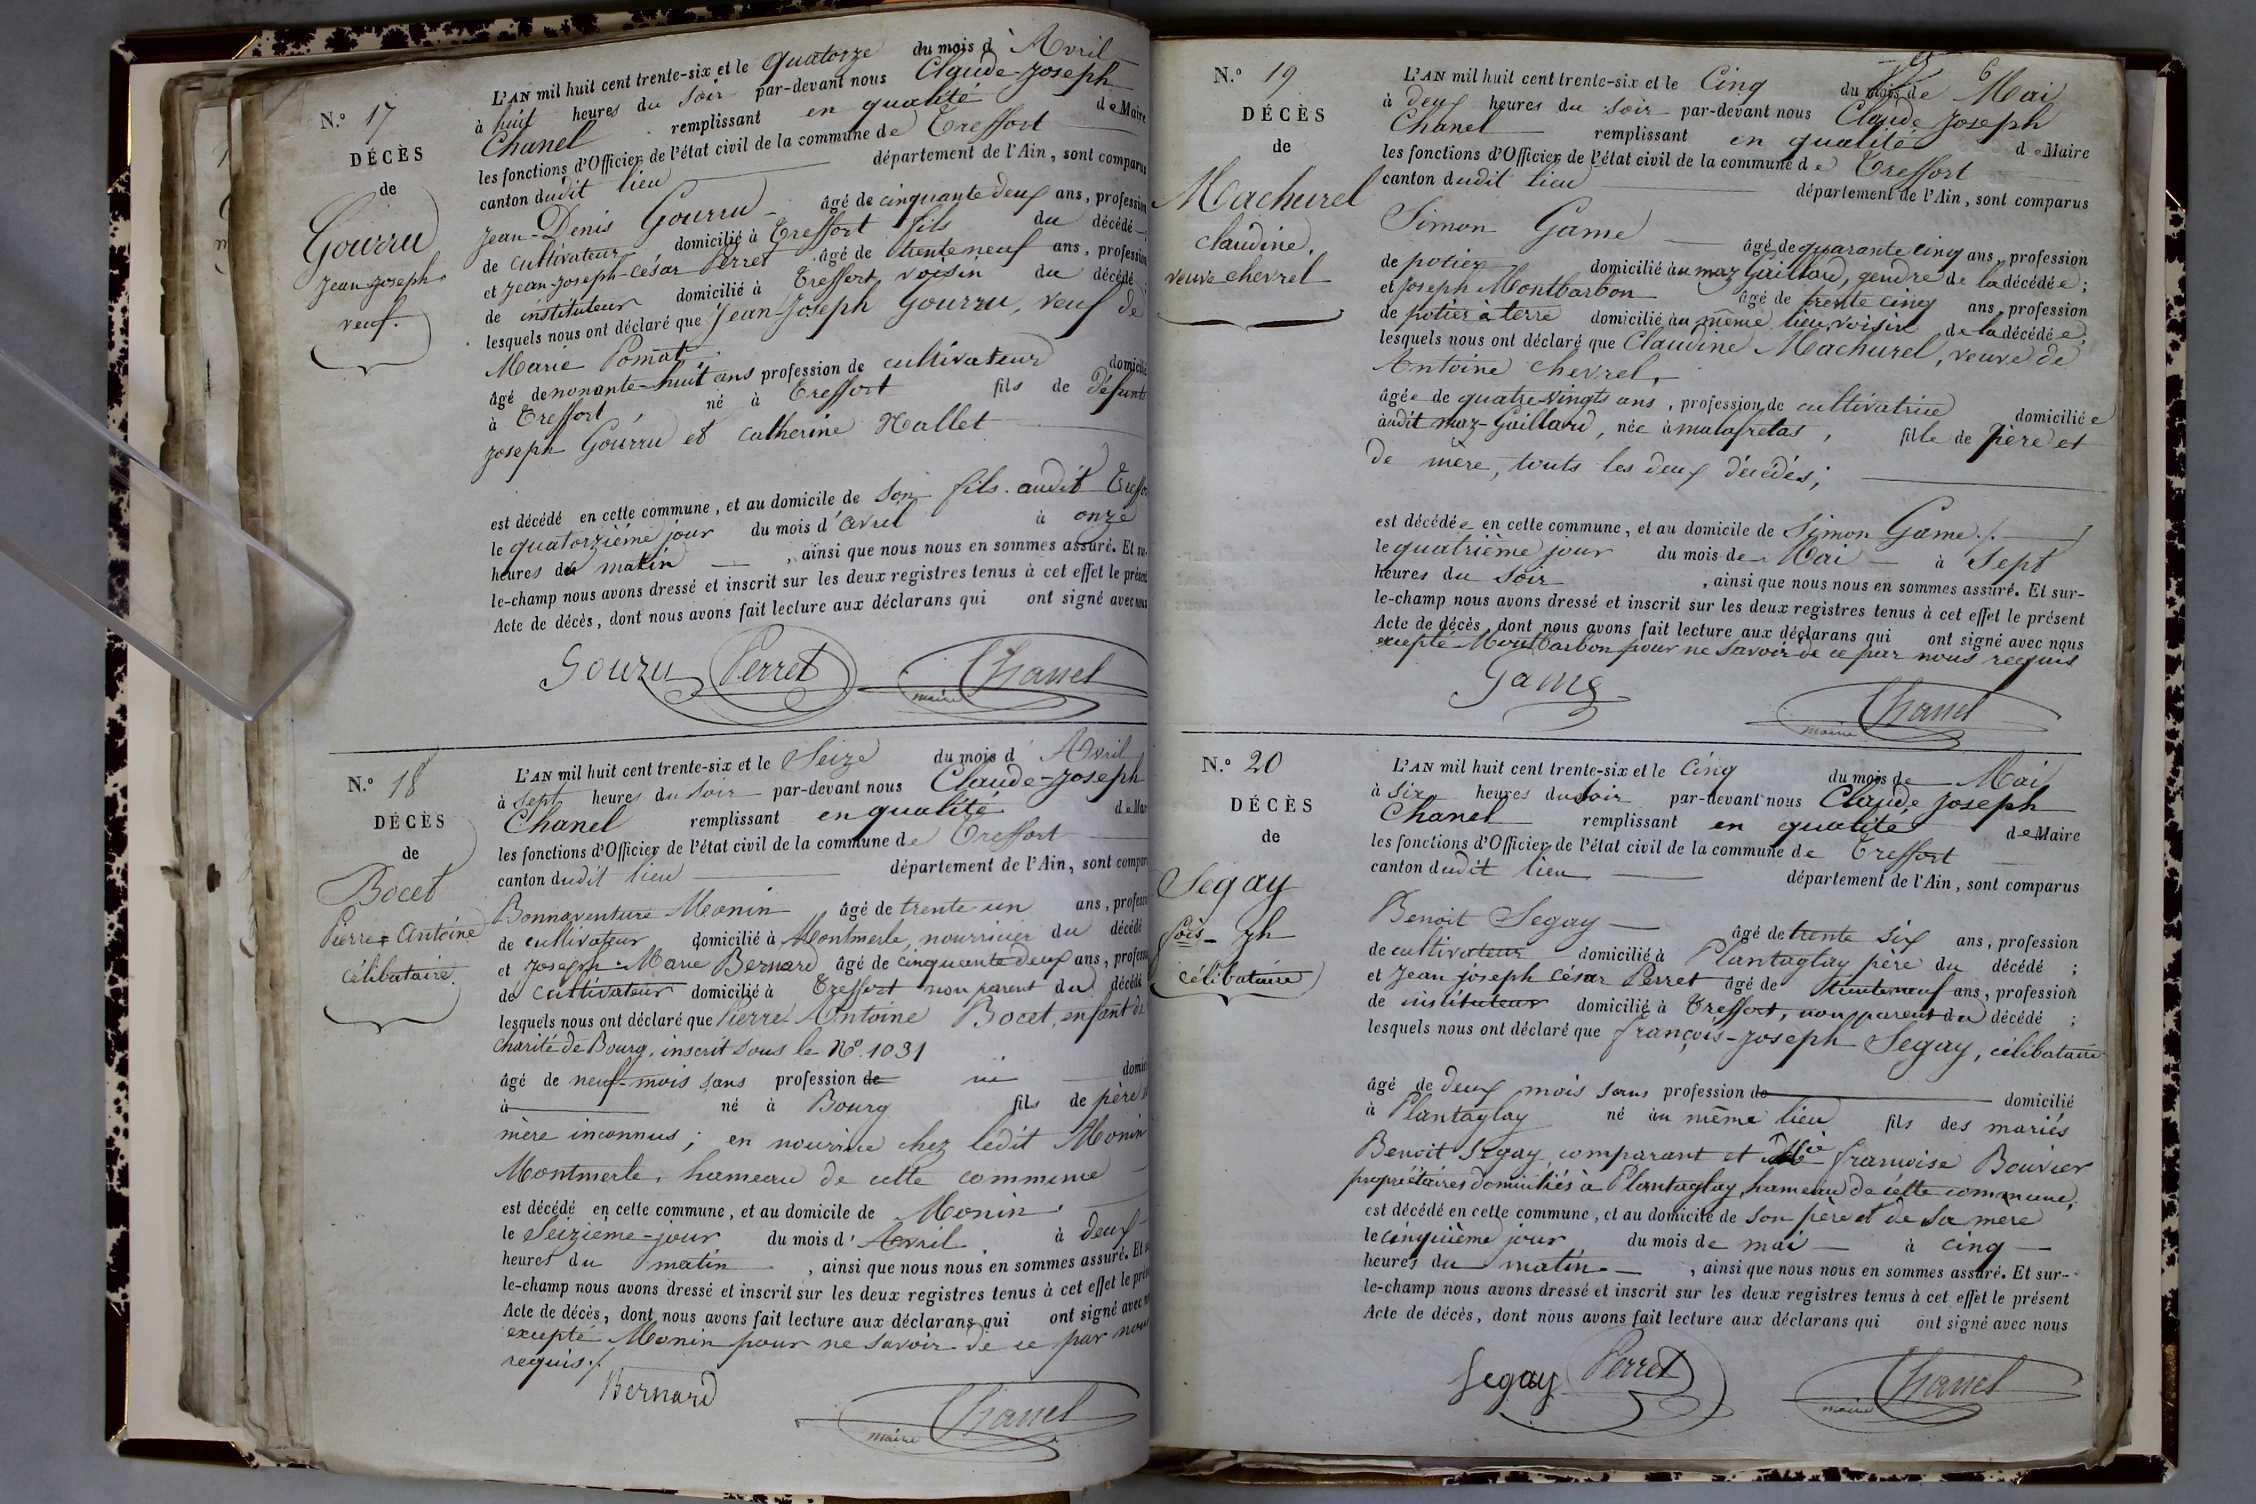 N.º 17
DÉCÈS
de
Gourru
Jean-Joseph
veuf.
L'AN mil huit cent trente-six et le quatorze du mois d'Avril
à huit heures du soir par-devant nous Claude-Joseph
Chanel remplissant en qualité de Maire
les fonctions d'Officier de l'état civil de la commune de Treffort
canton dudit lieu département de l'Ain, sont comparus
Jean-Denis Gourru âgé de cinquante deux ans, profession
de cultivateur domicilié à Treffort fils du décédé
et Jean-Joseph-César Perret âgé de trente neuf ans, profession
de instituteur domicilié à Treffort, voisin du décédé;
lesquels nous ont déclaré que Jean-Joseph Gourru, veuf de
Marie Pomat,
âgé de nonante-huit ans profession de cultivateur domicilié
à Treffort, né à Treffort fils de défunt
Joseph Gourru et Catherine Nallet
est décédé en cette commune, et au domicile de son fils audit Treffort
le quatorzième jour du mois d'avril à onze
heures du matin, ainsi que nous nous en sommes assuré. Et sur-
le-champ nous avons dressé et inscrit sur les deux registres tenus à cet effet le présent
Acte de décès, dont nous avons fait lecture aux déclarans qui ont signé avec nous
Gouru Perret Chanel
maire
N.º 18
DÉCÈS
de
Bocet
Pierre Antoine
célibataire.
L'AN mil huit cent trente-six et le Seize du mois d'Avril
à sept heures du soir par-devant nous Claude-Joseph
Chanel remplissant en qualité de Maire
les fonctions d'Officier de l'état civil de la commune de Treffort
canton dudit lieu département de l'Ain, sont comparus
Bonnaventure Monin âgé de trente un ans, profession
de cultivateur domicilié à Montmerle, nourricier du décédé
et Joseph-Marie Bernard âgé de cinquante deux ans, profession
de cultivateur domicilié à Treffort non parent du décédé
lesquels nous ont déclaré que Pierre Antoine Bocet, enfant de
charité de Bourg, inscrit sous le Nº. 1031
âgé de neuf-mois sans profession de ni domicilié
à né à Bourg fils de père et
mère inconnus; en nourrice chez ledit Monin
Montmerle, hameau de cette commune
est décédé en cette commune, et au domicile de Monin
le Seizième jour du mois d'Avril à deux
heures du matin, ainsi que nous nous en sommes assuré. Et sur-
le-champ nous avons dressé et inscrit sur les deux registres tenus à cet effet le présent
Acte de décès, dont nous avons fait lecture aux déclarans qui ont signé avec nous
excepté Monin pour ne savoir de ce par nous
requis./.
Bernard Chanel
maire
6
N.º 19
DÉCÈS
de
Machurel
Claudine,
veuve chevrel
L'AN mil huit cent trente-six et le Cinq du mois de Mai
à deux heures du soir par-devant nous Claude Joseph
Chanel remplissant en qualité de Maire
les fonctions d'Officier de l'état civil de la commune de Treffort
canton dudit lieu département de l'Ain, sont comparus
Simon Game âgé de quarante cinq ans, profession
de potier domicilié au maz Gaillard, gendre de la décédée;
et Joseph Montbarbon âgé de trente cinq ans, profession
de potier à terre domicilié au même lieu, voisin de la décédée;
lesquels nous ont déclaré que Claudine Machurel, veuve de
Antoine Chevrel,
âgée de quatre-vingts ans, profession de cultivatrice domiciliée
audit maz-Gaillard, née à malafretas, fille de père et
de mère, touts les deux décédés;
est décédée en cette commune, et au domicile de Simon Game./.
le quatrième jour du mois de Mai à Sept
heures du soir, ainsi que nous nous en sommes assuré. Et sur-
le-champ nous avons dressé et inscrit sur les deux registres tenus à cet effet le présent
Acte de décès, dont nous avons fait lecture aux déclarans qui ont signé avec nous
excepté Montbarbon pour ne savoir de ce par nous requis
Game Chanel
maire
N.º 20
DÉCÈS
de
Segay
fois-Jh
célibataire
L'AN mil huit cent trente-six et le Cinq du mois de Mai
à six heures du soir par-devant nous Claude Joseph
Chanel remplissant en qualité de Maire
les fonctions d'Officier de l'état civil de la commune de Treffort
canton dudit lieu département de l'Ain, sont comparus
Benoit Segay âgé de trente six ans, profession
de cultivateur domicilié à Plantaglay père du décédé;
et Jean Joseph César Perret âgé de trente neuf ans, profession
de instituteur domicilié à Treffort, non parent du décédé;
lesquels nous ont déclaré que françois-Joseph Segay, célibataire
âgé de deux mois sans profession de domicilié
à Plantaglay né au même lieu fils des mariés
Benoit Segay, comparant et françoise Bouvier
propriétaires domiciliés à Plantaglay, hameau de cette commune;
est décédé en cette commune, et au domicile de son père et de sa mère
le cinquième jour du mois de mai à cinq
heures du matin, ainsi que nous nous en sommes assuré. Et sur-
le-champ nous avons dressé et inscrit sur les deux registres tenus à cet effet le présent
Acte de décès, dont nous avons fait lecture aux déclarans qui ont signé avec nous
Segay Perret Chanel
maire